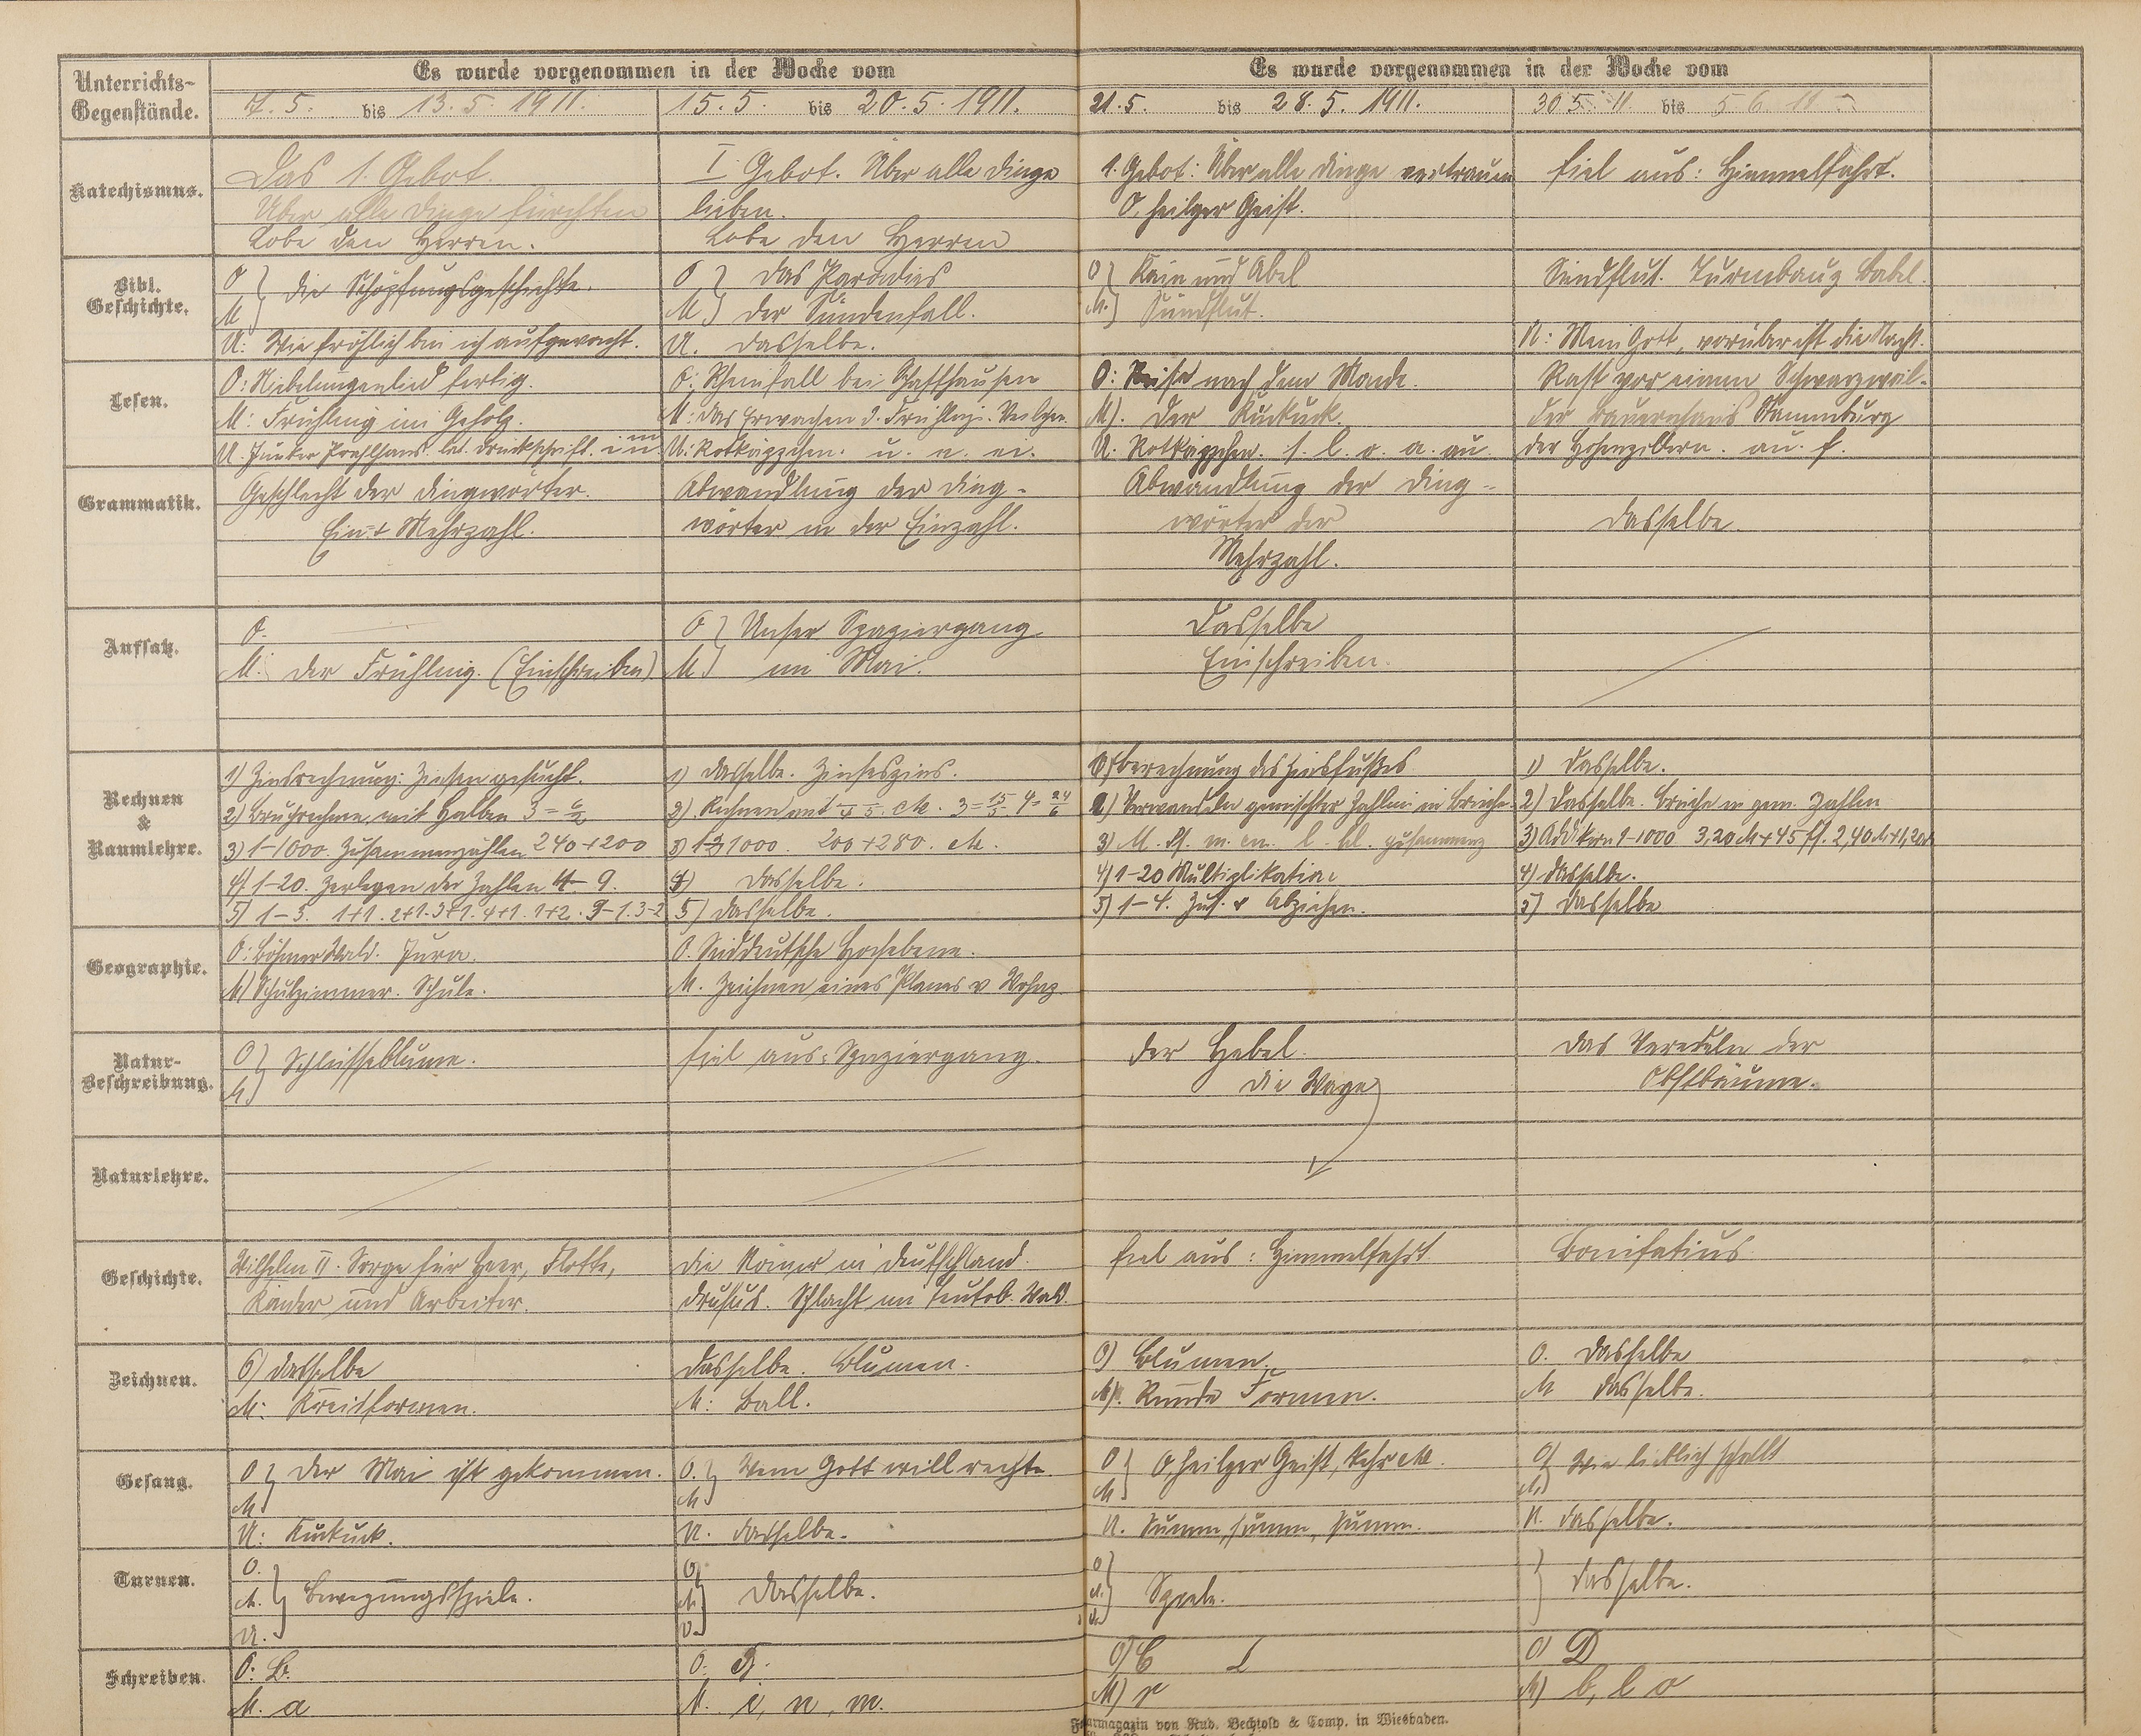 Unterrichts-
Gegenstände.
Es wurde vorgenommen in der Woche vom
Es wurde vorgenommen in der Woche vom
5. bis 13. 5. 1911.
15. 5. bis 20. 5. 1911.
21. 5. bis 28. 5. 1911.
30 5. 11. bis 5 6. 11
Katechismus.
Das 1. Gebot.
Über alle Dinge fürchten
Lobe den Herren.
I. Gebot. Über alle Dinge
lieben.
Lobe den Herren
1. Gebot: Über alle Dinge vertrauen
O, heilger Geist.
fiel aus: Himmelfahrt.
Bibl.
Geschichte.
O
M
Die Schöpfungsgeschichte.
U: Wie fröhlich bin ich aufgewacht.
O } Das Paradies
M } Der Sündenfall.
U. Dasselbe.
O } Kain und Abel
M. } Sündflut.
Sündflut. Turmbau z Babel.
U: Mein Gott, vorüber ist die Nacht.
Lesen.
O: Nibelungenlied fertig.
M: Frühling im Gehölz.
U. Junker Prahlhans. lat. Druckschrift. i u m
O: Rheinfall bei Schaffhausen
M: Das Erwachen d. Frühlings. Veilchen
U: Rotkäppchen. u. n. ei.
O: Reise nach dem Monde.
M). Der Kuckuck.
U. Rotkäppchen. f. l. o. a. au.
Rast vor einem Schwarzwäl-
der Bauernhaus Stammburg
der Hohenzollern. au. f.
Grammatik.
Geschlecht der Dingwörter.
Ein- + Mehrzahl.
Abwandlung der Ding-
wörter in der Einzahl.
Abwandlung der Ding-
wörter der
Mehrzahl.
Dasselbe.
Aufsatz.
O.
M: Der Frühling. (Einschreiben)
O } Unser Spaziergang
M } im Mai.
Dasselbe
Einschreiben.
Rechnen
&
Raumlehre.
1) Zinsrechnung: Zinsen gesucht.
2) Bruchrechnen mit Halben 3 = 6/2
3) 1-1000. Zusammenzählen 240 + 200
4) 1-20. Zerlegen der Zahlen 9.
5) 1-3. 1+1. 2+1. 3+1. 4+1. 1+2. 3-1. 3-2
1) Dasselbe. Zinseszins.
2). Rechnen mit 3 = 15/5 4 = 24/6
3) 1-1000. 200 + 280.
4) Dasselbe.
5) Dasselbe.
Berechnung des Zinsfußes
2) Verwandeln gemischter Zahlen in Brüche
3) M. Pf. m. cm. l. hl.
4) 1-20 Multiplikation
5) 1-4. Zus. + Abziehen.
1) Dasselbe.
2) Dasselbe. Brüche in gem. Zahlen
3) Addieren 1-1000 3,20 M + 45 Pf. 2,40 M + 1,20
4) Dasselbe.
5) Dasselbe
Geographie.
O: Böhmer Wald. Jura.
M) Schulzimmer. Schule.
O. Süddeutsche Hochebene.
M. Zeichnen eines Planes v Wohnz.
Natur-
Beschreibung.
O
M
Schlüsselblume.
fiel aus: Spaziergang.
Der Hebel.
Die Wage
Das Veredeln der
Obstbäume.
Naturlehre.
Geschichte.
Wilhelm II. Sorge für Heer, Flotte,
Länder und Arbeiter.
Die Römer in Deutschland.
Drusus. Schlacht im Teutob. Wald.
fiel aus: Himmelfahrt
Bonifatius
Zeichnen.
O) Dasselbe
M: Kreisformen.
Dasselbe. Blumen.
M: Ball.
O) Blumen.
M). Runde Formen.
O. Dasselbe
M Dasselbe.
Gesang.
O
M
Der Mai ist gekommen.
U: Kuckuck.
O.
M
Wem Gott will rechte.
U. Dasselbe.
O
M
O, heilger Geist, kehr
U. Summ, summ, summ.
O
M
Wie lieblich schallt
U. Dasselbe.
Turnen.
O.
M.
U.
Bewegungsspiele.
O
M
U
Dasselbe.
O
M.
U.
Spiele.
Dasselbe.
Schreiben.
O: B.
M. a
O.
M. i, n, m.
O) C L
M) r
O) D
M) b, l o
Formmagazin von Rud. Bechtold & Comp. in Wiesbaden.